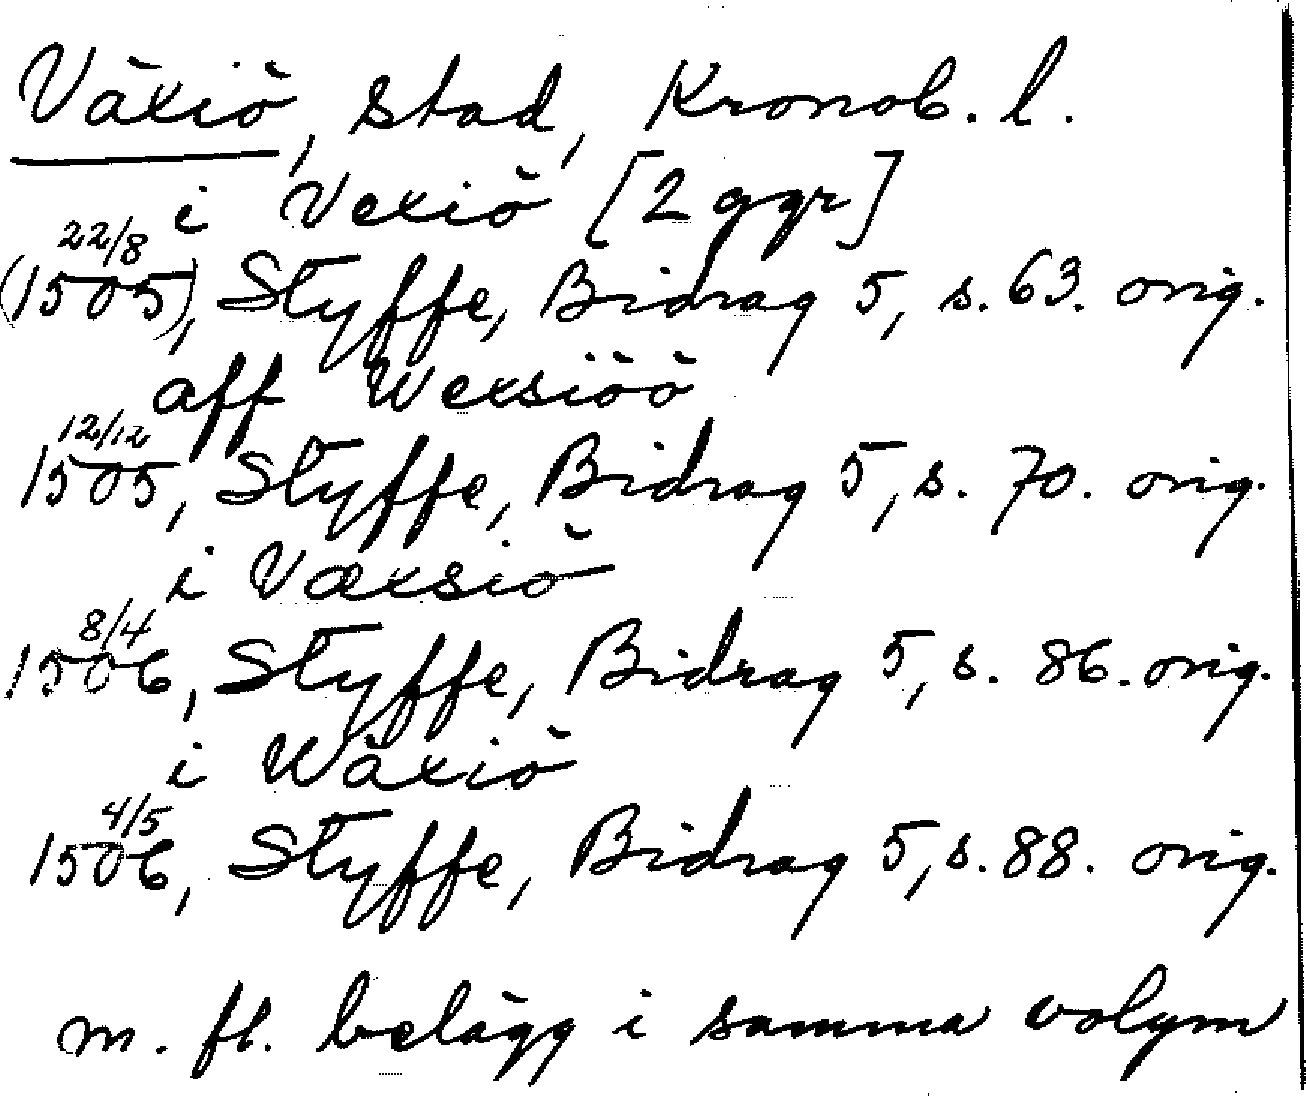 Växiö, stad, Kronob. l.
i Vexiö [2 ggr]
22/8
(1505), Styffe, Bidrag 5, s. 63. orig.
aff Wexsiöö
12/12
1505, Styffe, Bidrag 5, s. 70. orig.
i Væxsiö
8/4
1506, Styffe, Bidrag 5, s. 86. orig.
i Wäxiö
4/5
1506, Styffe, Bidrag 5, s. 88. orig.
m. fl. belägg i samma volym